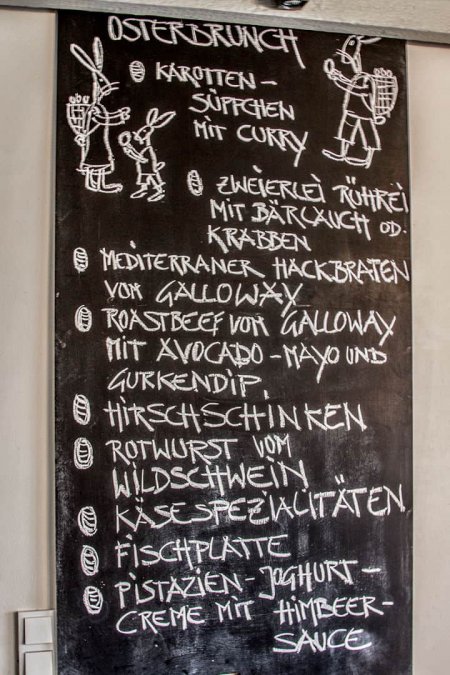 OSTERBRUNCH
KAROTTEN-
SÜPPCHEN
MIT CURRY
ZWEIERLEI RÜHREI
MIT BÄRLAUCH OD.
KRABBEN
MEDITERRANER HACKBRATEN
VOM GALLOWAY
ROASTBEEF VOM GALLOWAY
MIT AVOCADO-MAYO UND
GURKENDIP.
HIRSCHSCHINKEN
ROTWURST VOM
WILDSCHWEIN
KÄSESPEZIALITÄTEN
FISCHPLATTE
PISTAZIEN-JOGHURT-
CREME MIT HIMBEER-
SAUCE